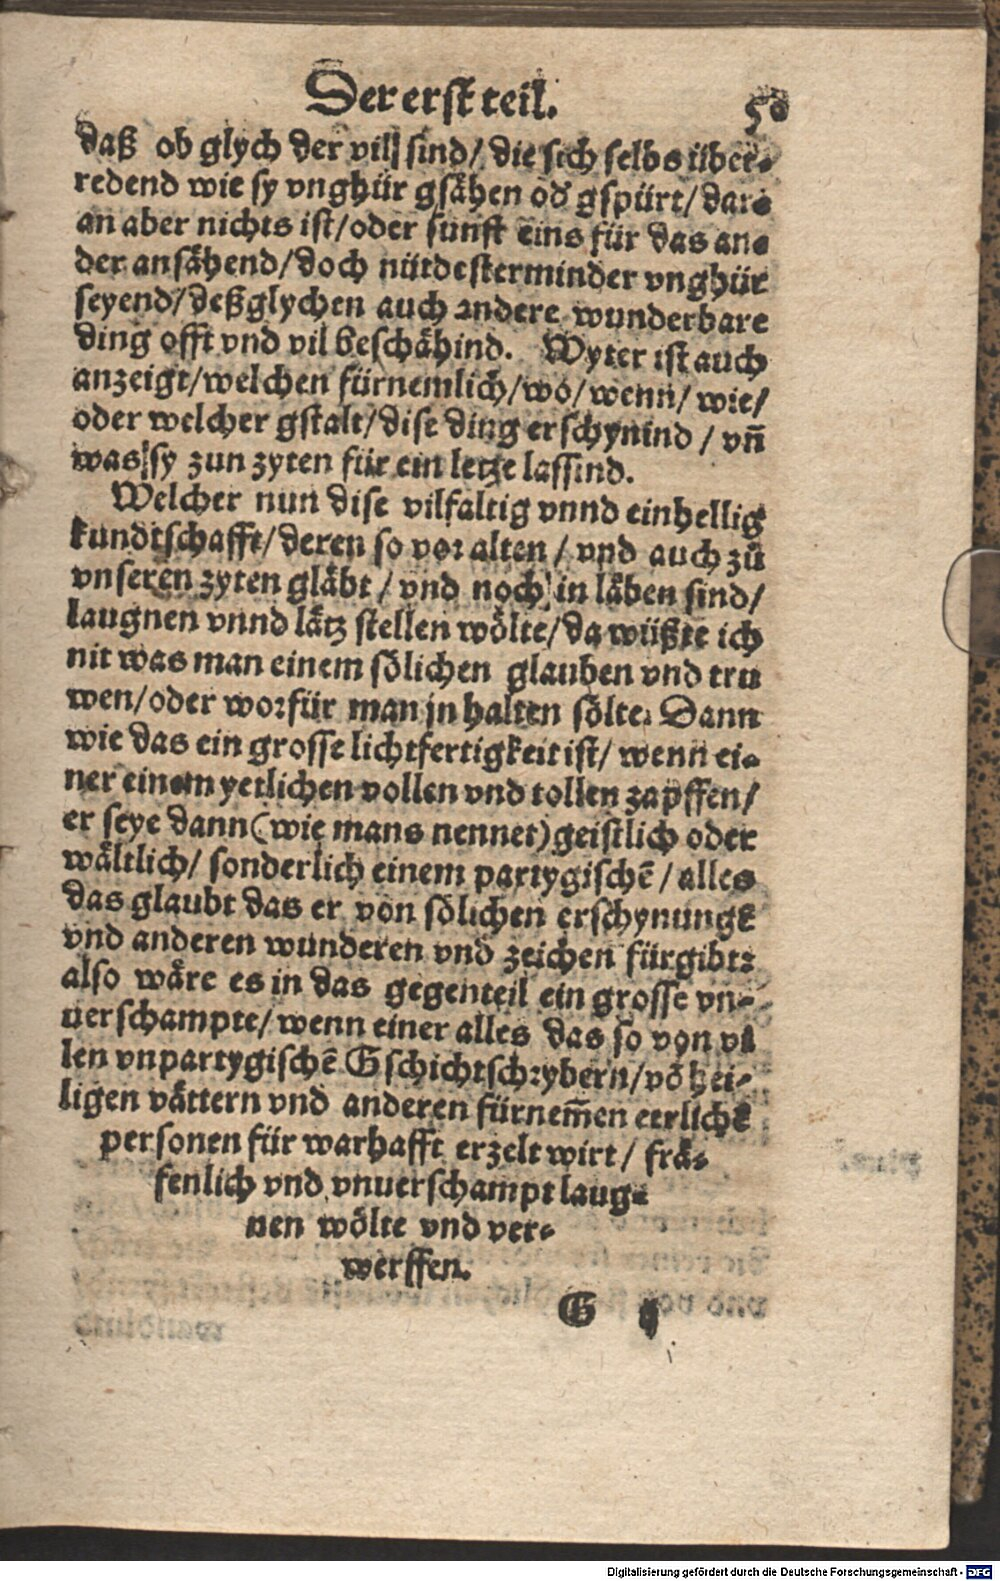 Der erst teil. 50
daß ob glych der vil sind/ die sich selbs über-
redend wie sy vnghür gsähen od̕ gspürt/ dar-
an aber nichts ist/ oder sunst eins für das an-
der ansähend/ doch nütdesterminder vnghür
seyend/ deßglychen auch andere wunderbare
ding offt vnd vil beschähind. Wyter ist auch
anzeigt/ welchen fürnemlich/ wo/ wenn/ wie/
oder welcher gstalt/ dise ding erschynind / vñ
was sy zun zyten für ein letze lassind.
Welcher nun dise vilfaltig vnnd einhellig
kundtschafft/ deren so vor alten / vnd auch zů
vnseren zyten gläbt / vnd noch in läben sind/
laugnen vnnd lätz stellen wölte/ da wüßte ich
nit was man einem sölichen glauben vnd tru
wen/ oder worfür man jn halten sölte. Dann
wie das ein grosse lichtfertigkeit ist/ wenn ei-
ner einem yetlichen vollen vnd tollen zapffen/
er seye dann (wie mans nennet) geistlich oder
wältlich/ sonderlich einem partygischē / alles
das glaubt das er von sölichen erschynungē
vnd anderen wunderen vnd zeichen fürgibt:
also wäre es in das gegenteil ein grosse vn-
uerschampte/ wenn einer alles das so von vil
len vnpartygischē Gschichtschrybern/ vō hei-
ligen vättern vnd anderen fürnem̄en eerlichē
personen für warhafft erzelt wirt / frä-
fenlich vnd vnuerschampt laug-
nen wölte vnd ver-
werffen.
G ij
Digitalisierung gefördert durch die Deutsche Forschungsgemeinschaft - DFG